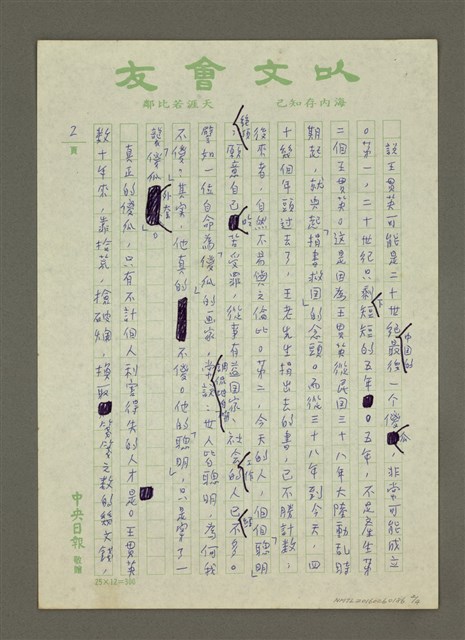 以文會友
海內存知己 天涯若比鄰
說王貫英可能是二十世紀最後一個傻瓜，非常可能成立
。第一，二十世紀只剩下短短的五年。五年，不足產生第
二個王貫英。這是因為王貫英從民國三十八年大陸動亂時
期起，就興起「捐書救國」的念頭。而從三十八年到今天，四
十幾個年頭過去了，王老先生捐出去的書，已不勝計數，
後來者，自然不易與之倫比。第二，今天的人，個個聰明
，願意自己吃苦受罪，從事有益國家、社會的工作的人已不多。
譬如一位自命為「傻瓜」的畫家，常說：世人皆聰明，為何我
不傻。其實，他真的不傻。他的「聰明」，只是穿了一
襲「傻瓜」外套。
真正的傻瓜，只有不計個人利害得失的人才是。王貫英
數十年來，靠拾荒，撿破爛，換取
之數的幾文錢，
中國的
絕頂
2
頁
中央日報 敬贈
25×12=300